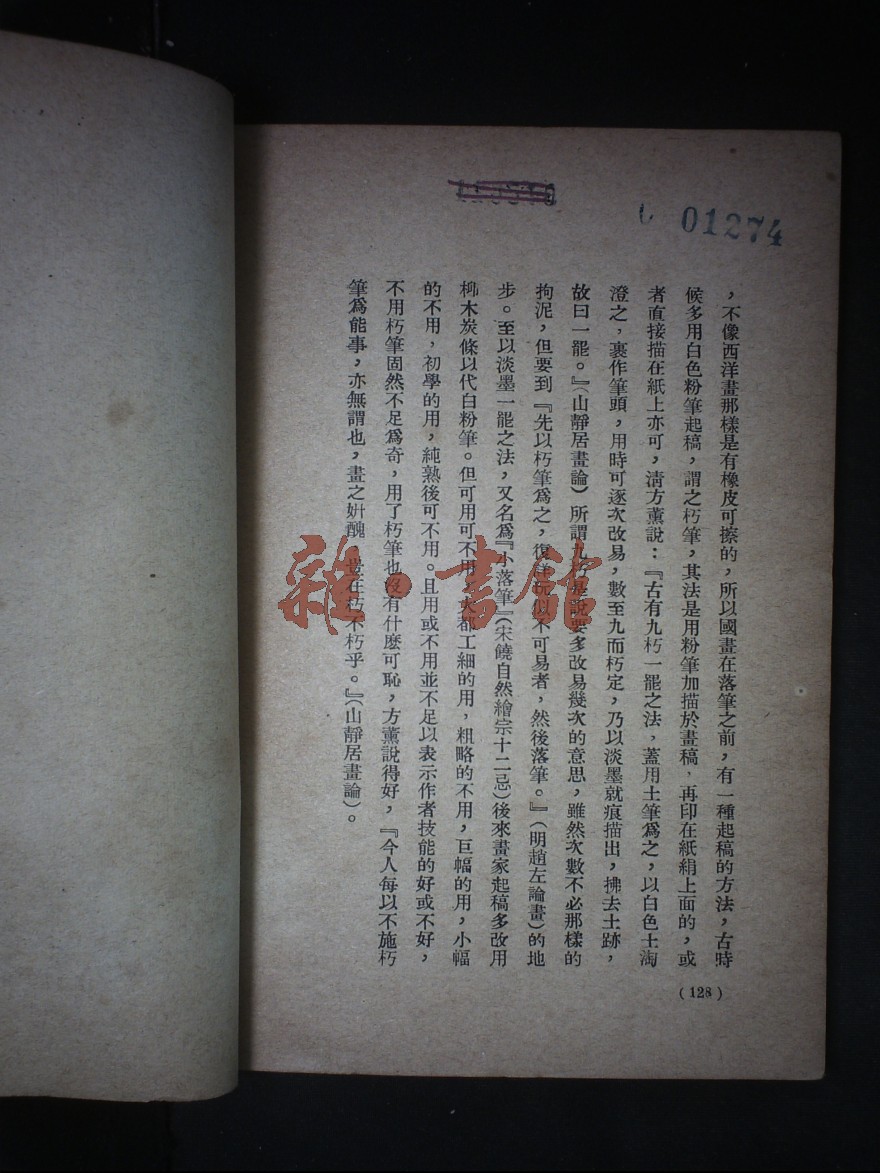 01274
，不像西洋畫那樣是有橡皮可擦的，所以國畫在落筆之前，有一種起稿的方法，古時
候多用白色粉筆起稿，謂之朽筆，其法是用粉筆加描於畫稿，再印在紙絹上面的，或
者直接描在紙上亦可，淸方薰說：『古有九朽一罷之法，蓋用土筆爲之，以白色土淘
澄之，裹作筆頭，用時可逐次改易，數至九而朽定，乃以淡墨就痕描出，拂去土跡，
故曰一罷。』（山靜居畫論）所謂九朽是說要多改易幾次的意思，雖然次數不必那樣的
拘泥，但要到『先以朽筆爲之，復詳玩似不可易者，然後落筆。』（明趙左論畫）的地
步。至以淡墨一罷之法，又名爲『小落筆』（宋饒自然繪宗十二忌）後來畫家起稿多改用
柳木炭條以代白粉筆。但可用可不用，大都工細的用，粗略的不用，巨幅的用，小幅
的不用，初學的用，純熟後可不用。且用或不用並不足以表示作者技能的好或不好，
不用朽筆固然不足爲奇，用了朽筆也沒有什麽可恥，方薰說得好，『今人每以不施朽
筆爲能事，亦無謂也，畫之姸醜，豈在朽不朽乎。』（山靜居畫論）。
（128）
雜·書館